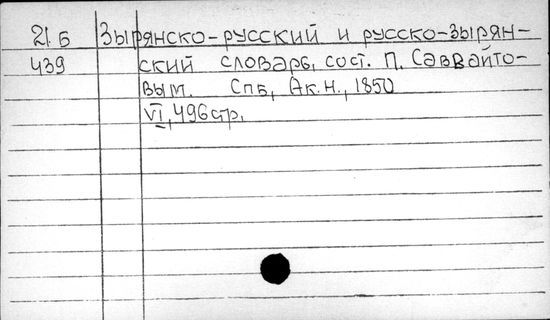 21 Б Зырянско-русский и русско-зырян-
439 ский словарь, сост. П. Саввайто-
вым. Спб, Ак.Н., 1850
VI, 496 стр.